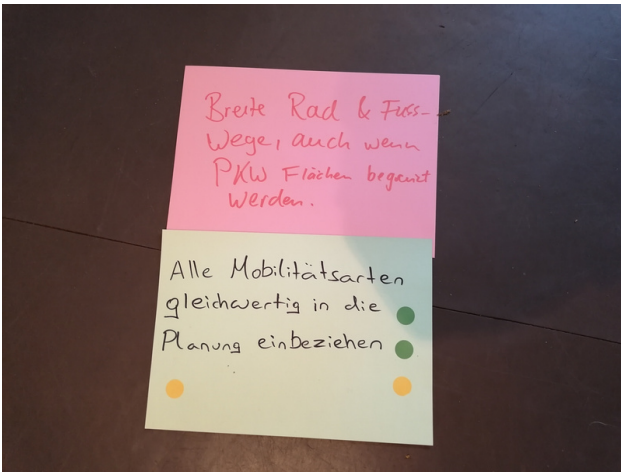 Breite Rad & Fuss-
Wege, auch wenn
PKW Flächen begrenzt
werden.
Alle Mobilitätsarten
gleichwertig in die
Planung einbeziehen